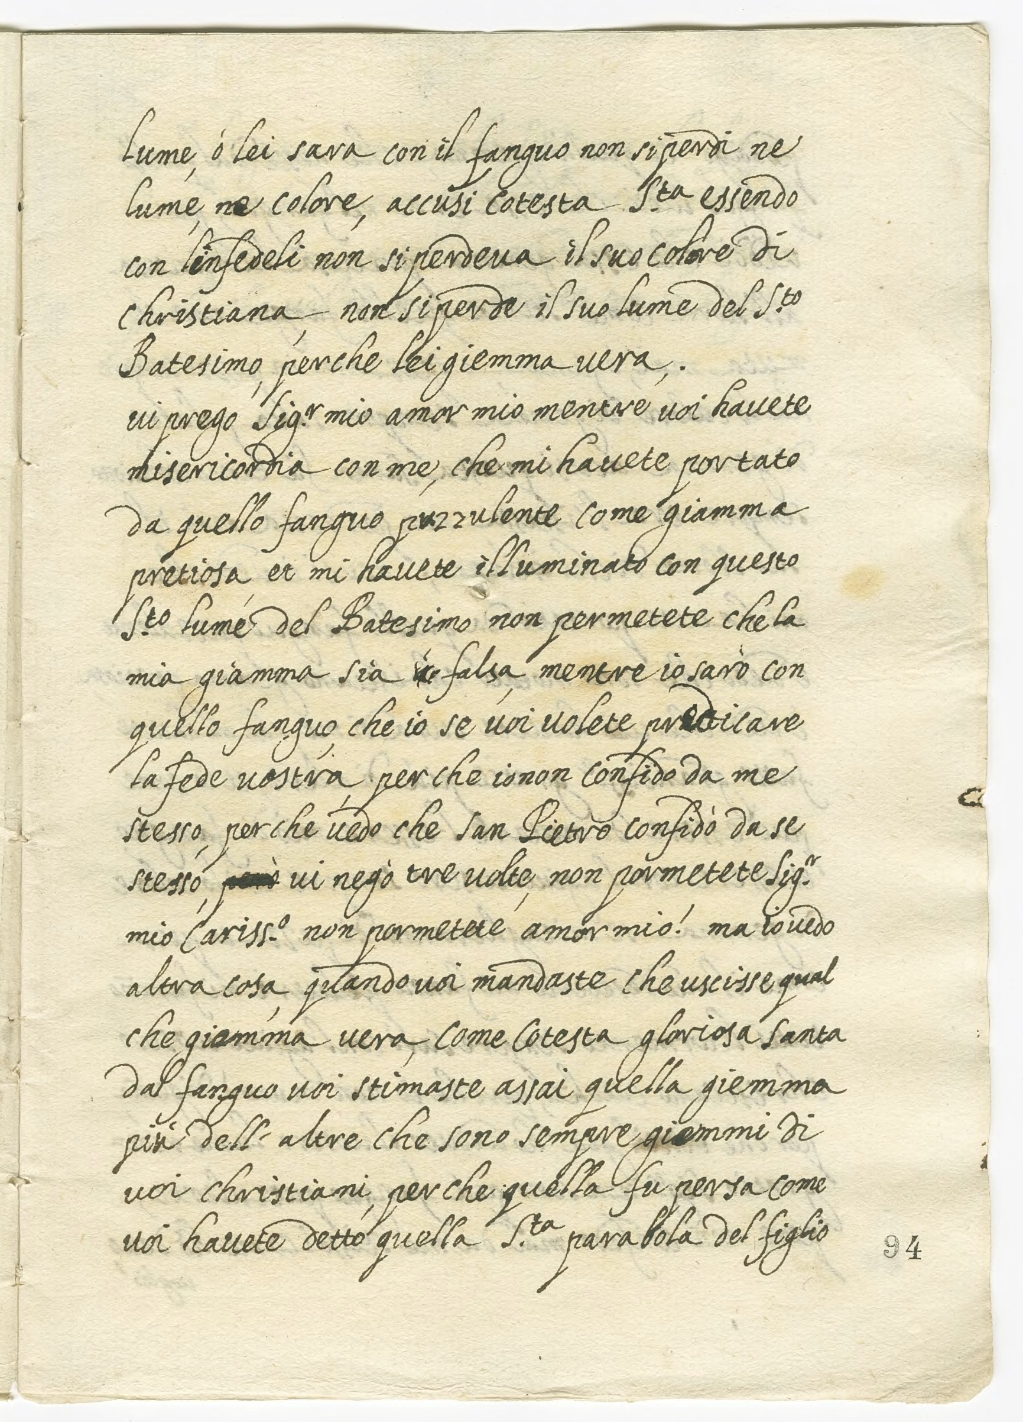 lume, ó lei sara con il fanguo non si perdi ne
lume, ne colore, accusi cotesta S.ta essendo
con linfedeli non si perdeua il suo colore di
christiana, non si perde il suo lume del S.to
Batesimo, perche lei giemma vera,.
vi prego Sig.r mio amor mio mentre voi hauete
misericordia con me, che mi hauete portato
da quello fanguo puzzulente come giamma
pretiosa, et mi hauete illuminato con questo
S.to lume del Batesimo non permetete che la
mia giamma sia falsa, mentre io sarò con
quello fanguo, che io se voi volete predicare
la fede vostra, perche io non confido da me
stesso, perche vedo che san Pietro confidò da se
stesso, però vi negò tre volte, non pormetete Sig.r
mio Cariss.o non pormetete amor mio! ma io vedo
altra cosa, quando voi mandaste che uscisse qual
che giemma vera, come cotesta gloriosa santa
dal fanguo voi stimaste assai quella giemma
più dell' altre che sono sempre giemmi di
voi christiani, perche quella fu persa come
voi hauete detto quella S.ta parabola del figlio
94